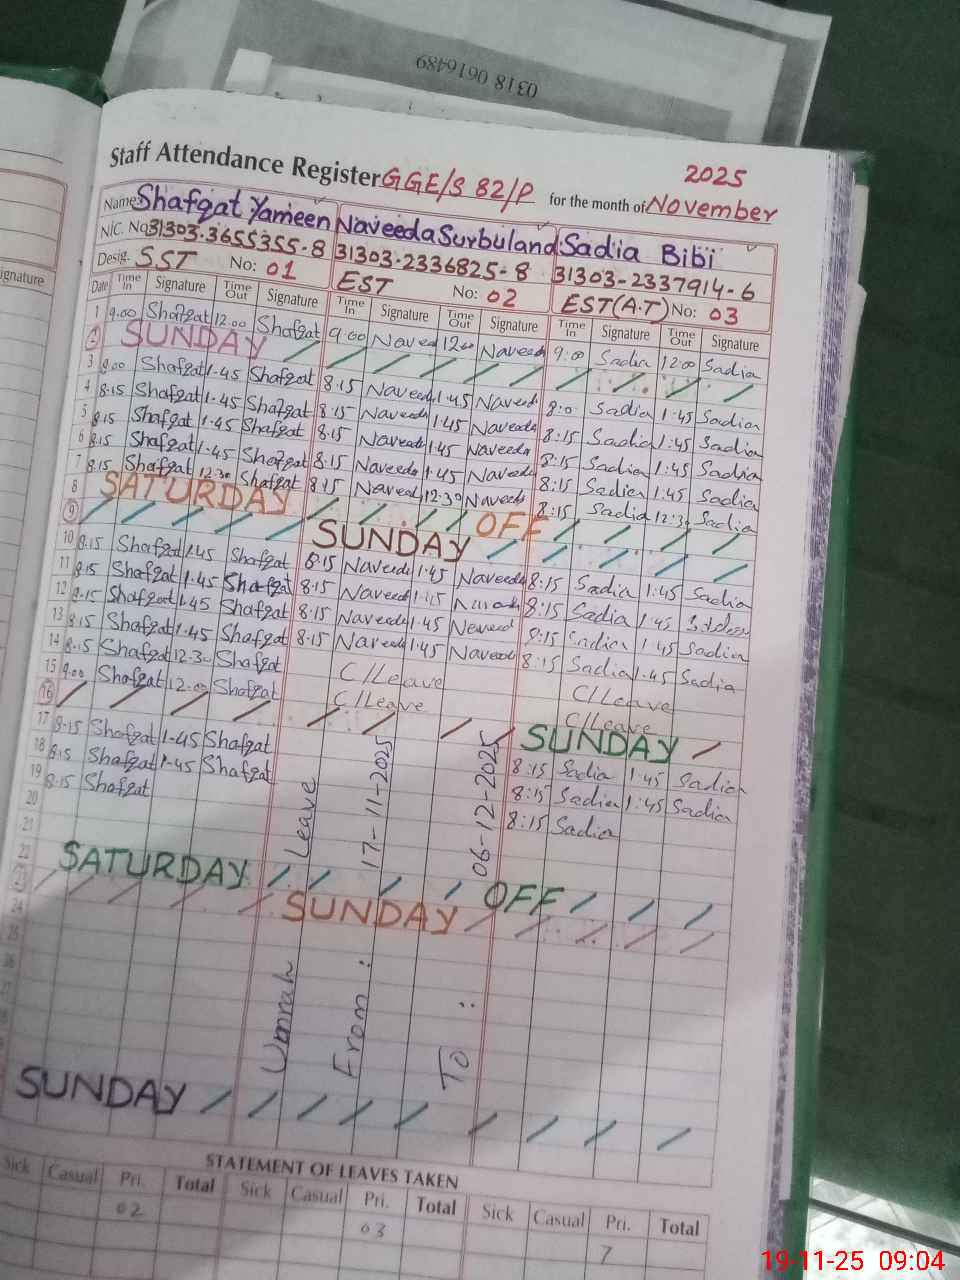 0318 0616489
Staff Attendance Register GGE/S 82/P for the month of November 2025
Name: Shafqat Yameen Naveeda Surbuland Sadia Bibi
N.I.C. No 31303-3655355-8 31303-2336825-8 31303-2337914-6
Desig. SST No: 01 EST No: 02 EST(A.T) No: 03
Date Time In Signature Time Out Signature Time In Signature Time Out Signature Time In Signature Time Out Signature
1 9.00 Shafqat 12.00 Shafqat 9.00 Naveed 12.00 Naveeda 9:00 Sadia 12:00 Sadia
2 SUNDAY
3 8.00 Shafqat 1.45 Shafqat 8:15 Naveeda 1:45 Naveeda 8:0 Sadia 1:45 Sadia
4 8.15 Shafqat 1.45 Shafqat 8:15 Naveeda 1:45 Naveeda 8:15 Sadia 1:45 Sadia
5 8.15 Shafqat 1.45 Shafqat 8.15 Naveeda 1:45 Naveeda 8:15 Sadia 1:45 Sadia
6 8.15 Shafqat 1.45 Shafqat 8:15 Naveeda 1:45 Naveeda 8:15 Sadia 1:45 Sadia
7 8.15 Shafqat 12.30 Shafqat 8:15 Naveed 12:30 Naveeda 8:15 Sadia 12:30 Sadia
8 SATURDAY OFF
9 SUNDAY
10 8.15 Shafqat 1.45 Shafqat 8:15 Naveeda 1:45 Naveeda 8:15 Sadia 1:45 Sadia
11 8.15 Shafqat 1.45 Shafqat 8:15 Naveeda 1:45 8:15 Sadia 1:45
12 8.15 Shafqat 1.45 Shafqat 8:15 Naveeda 1:45 Naveed 8:15 Sadia 1:45 Sadia
13 8.15 Shafqat 1.45 Shafqat 8:15 Naveeda 1:45 Naveeda 8:15 Sadia 1.45 Sadia
14 8.15 Shafqat 12.30 Shafqat C/Leave C/Leave
15 9.00 Shafqat 12.00 Shafqat C/Leave C/Leave
16 SUNDAY
17 8.15 Shafqat 1.45 Shafqat 8:15 Sadia 1:45 Sadia
18 8.15 Shafqat 1.45 Shafqat 8:15 Sadia 1:45 Sadia
19 8.15 Shafqat 8:15 Sadia
20
21
22 SATURDAY OFF
SUNDAY
24
25
Umrah Leave
From : 17-11-2025
To : 06-12-2025
SUNDAY
STATEMENT OF LEAVES TAKEN
Sick Casual Pri. Total Sick Casual Pri. Total Sick Casual Pri. Total
02 03 7
19-11-25 09:04